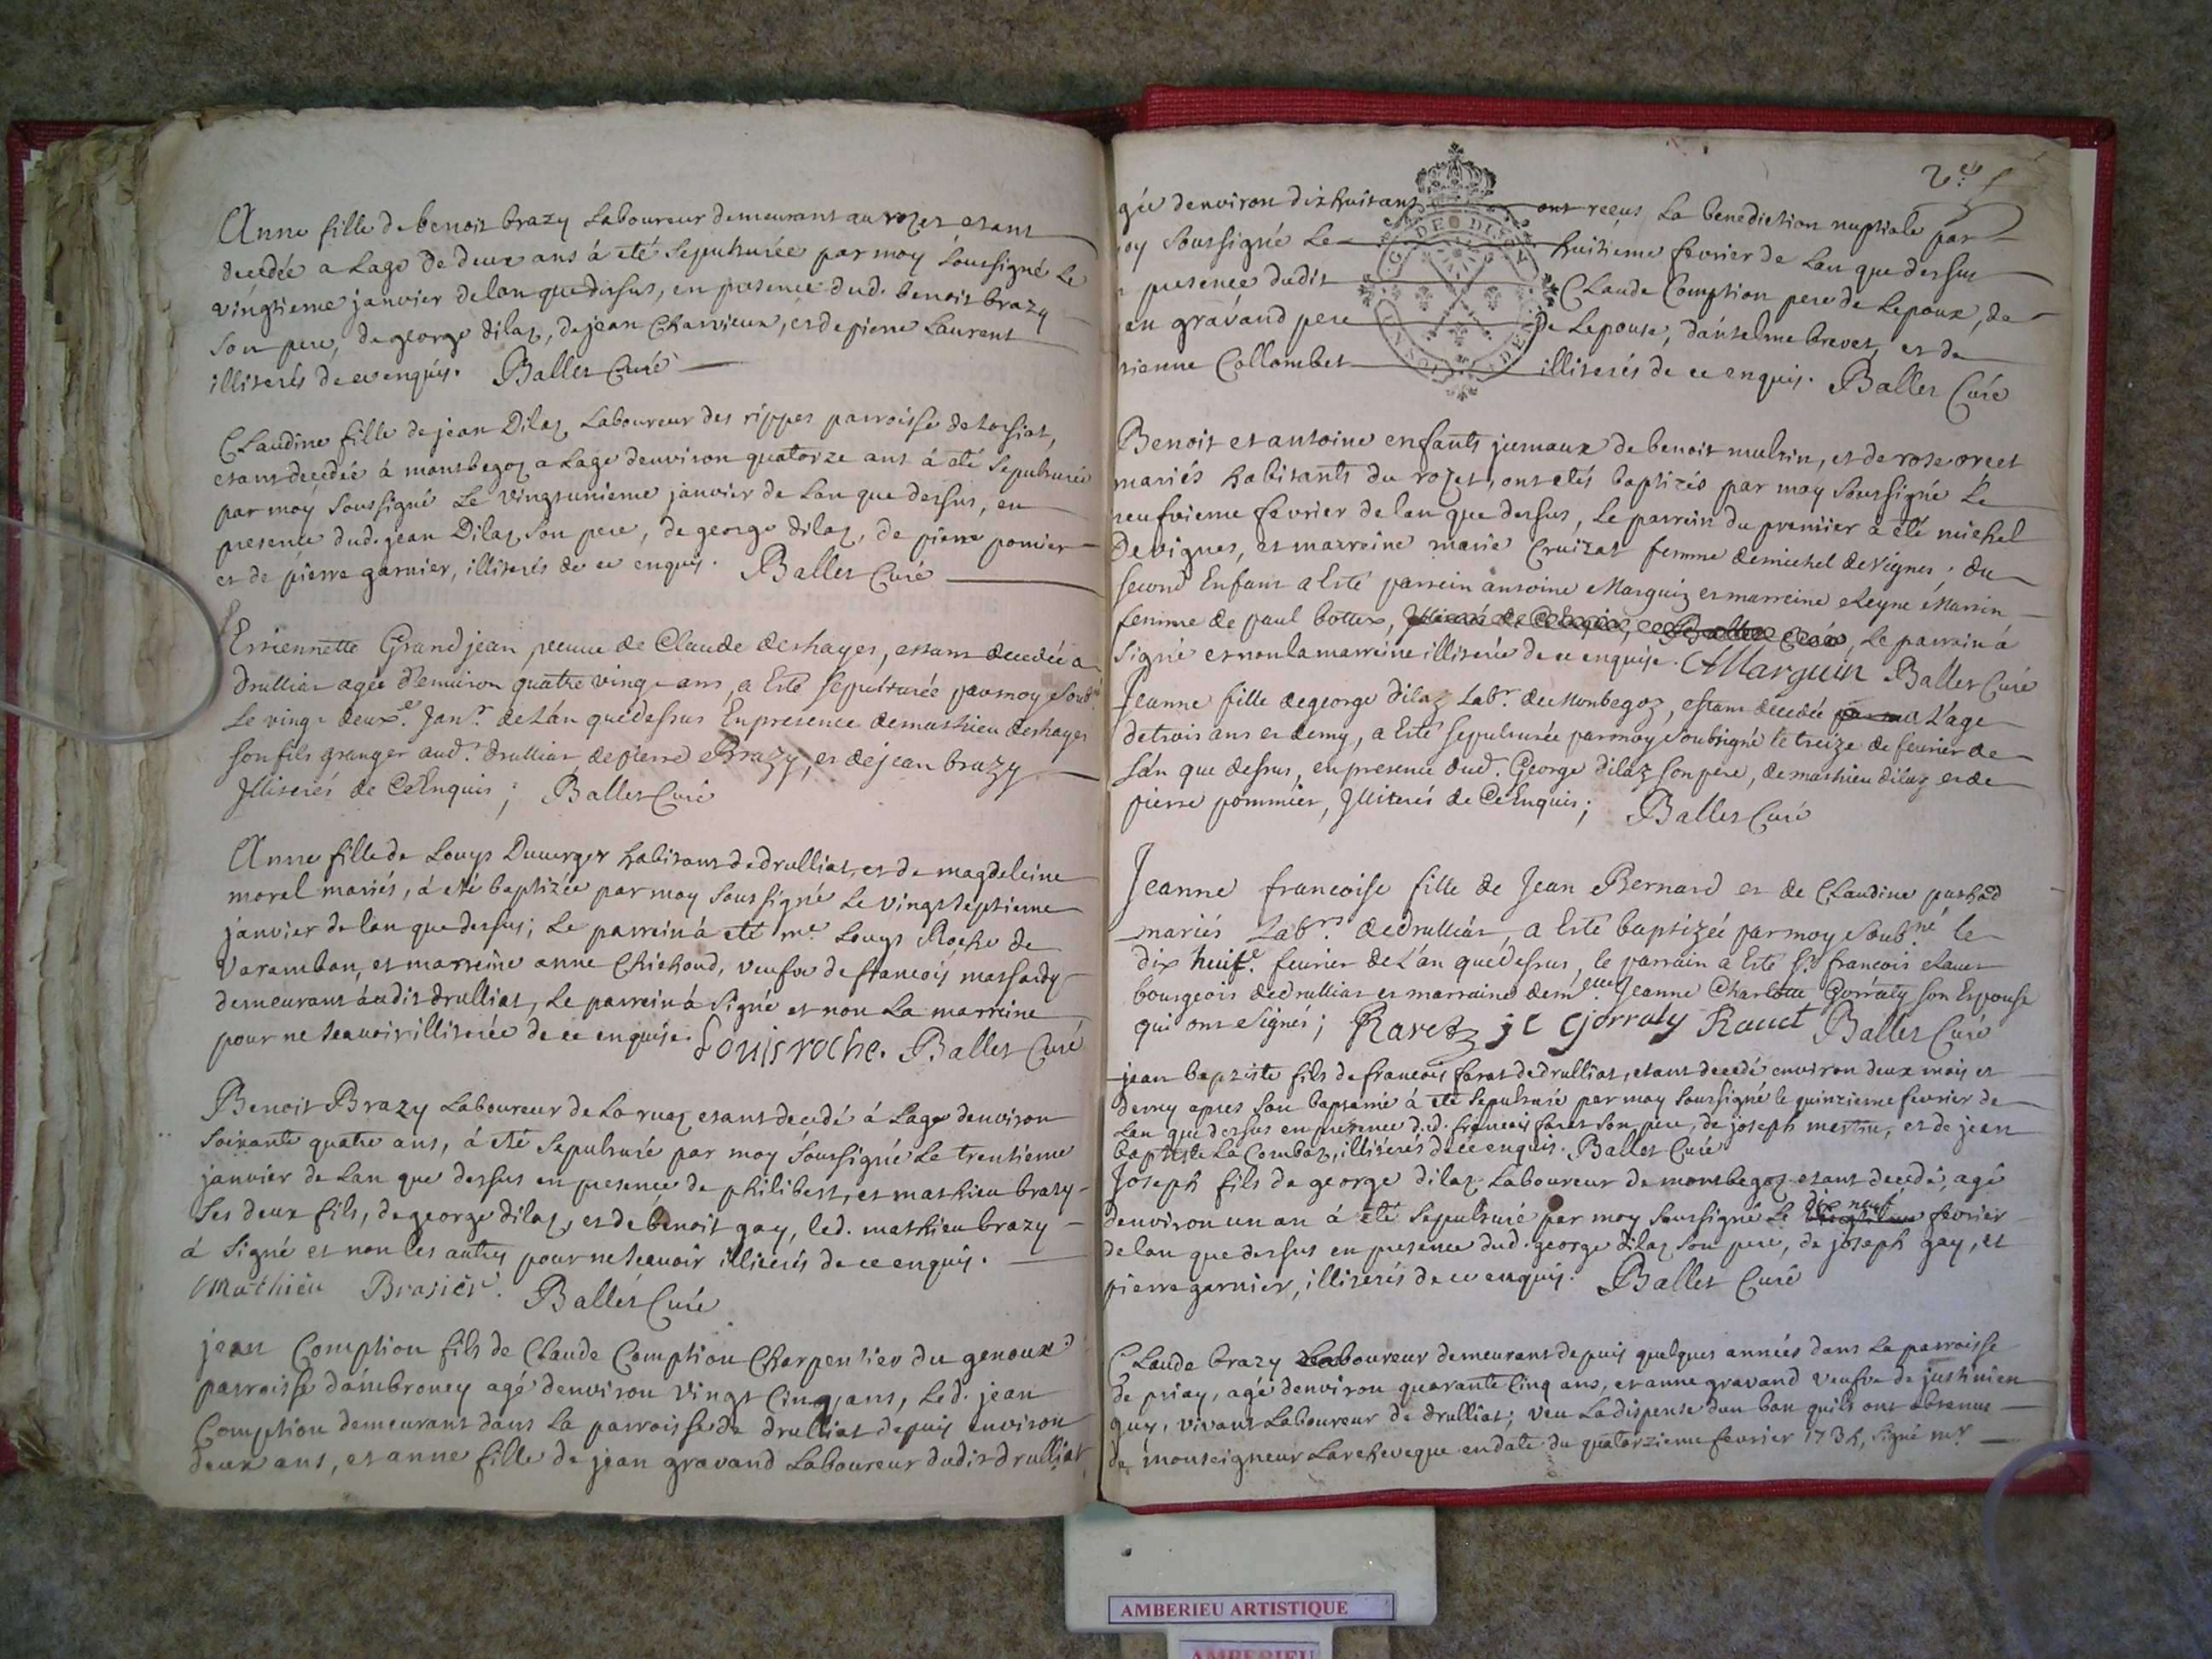 Anne fille de benoit brazy Laboureur demeurant au rozet etant
decedée a Lage de deux ans á eté Sepulturée par moy Soussigné Le
vingtieme janvier de lan que dessus, en presence dud. benoit brazy
Son pere, de george dilaz, de jean Charvieux, et de pierre Laurent
illiterés de ce enquis. Ballet Curé
Claudine fille de jean Dilaz Laboureur des rippes parroisse de
etant decedée á montbegoz a Lage denviron quatorze ans á eté Sepulturée
par moy Soussigné Le vingtunieme janvier de Lan que dessus, en
presence dud. jean Dilaz Son pere, de george dilaz, de pierre pomier
et de pierre garnier, illiterés de ce enquis. Ballet Curé
Estiennette Grandjean veuve de Claude deshayes, estant decedée a
drulliat agée d'environ quatre vingt ans, a Esté Sepulturée par moy Soubné
Le vingt deuxe. Janr. de L'an que dessus En presence de mathieu deshayes
son fils granger aud. drulliat de pierre Brazy, et de jean brazy
Illiterés de Ce Enquis; Ballet Curé
Anne fille de Louys Duverger habitant de drulliat, et de magdeleine
morel mariés, á eté baptizée par moy Soussigné Le vingtseptieme
janvier de lan que dessus; Le parrein á eté me. Louys Roche de
Varambon, et marreine anne Chichoud, veufve de francois massardy
demeurant audit drulliat, Le parrein á Signé et non La marreine
pour ne Scavoir illiterée de ce enquise. Louis roche. Ballet Curé
Benoit Brazy Laboureur de La ruaz etant decedé á Lage denviron
Soixante quatre ans, á eté Sepulturé par moy Soussigné Le trentieme
janvier de Lan que dessus en presence de philibert, et mathieu brazy
Ses deux fils, de george dilaz, et de benoit gay, led. mathieu brazy
á Signé et non les autres pour ne Scavoir illiterés de ce enquis.
Mathieu Brasier. Ballet Curé
jean Comption fils de Claude Comption Charpentier du genoux
parroisse dámbroney agé denviron vingt Cinq ans, Led. jean
Comption demeurant dans La parroisse de drulliat depuis environ
deux ans, et anne fille de jean gravand Laboureur dudit drulliat
gée denviron dixhuit ans ont reçus La benediction nuptiale par
oy Soussigné Le huitieme fevrier de Lan que dessus
presence dudit Claude Comption pere de Lepoux, de
an gravand pere de Lepouse, danthelme brevet, et de
tienne Collombet illiterés de ce enquis. Ballet Curé
Benoit et antoine enfants jumaux de benoit multin, et de rose orcet
mariés habitants du rozet, ont etés baptizés par moy Soussigné Le
neufvieme fevrier de lan que dessus, Le parrein du premier a eté michel
Devignes, et marreine marie Cruizat femme de michel de Vignes; du
second Enfant a Esté parrein antoine Marguin et marreine Martin
femme de paul bottex, Le parrein á
Signé et non la marreine illiterée de ce enquise. AMarguin Ballet Curé
Jeanne fille de george dilaz Labr. de Monbegoz, estant decedée a L'age
de trois ans et demy, a Esté sepulturée par moy Soubsigné le treize de fevrier de
L'an que dessus, en presence dud. George dilaz son pere, de mathieu dilaz et de
pierre pommier, Illiterés de Ce Enquis; Ballet Curé
Jeanne francoise fille de Jean Bernard et de Claudine
mariés Labrs. de drulliat, a Esté baptizée par moy Soubné le
dix neufe. fevrier de L'an que dessus, le parrain a Esté Sr francois
bourgeois de drulliat et marraine demlle Jeanne Charlotte Gorraty son Espouse
qui ont signés; Ravet jC Gorraty Ravet Ballet Curé
jean baptiste fils de francois faret de drulliat, etant decedé environ deux mois et
demy apres Son baptemé á eté Sepulturé par moy Soussigné le quinzieme fevrier de
Lan que dessus en presence dud. francois faret Son pere, de joseph mestre, et de jean
baptiste La Combaz, illiterés de ce enquis. Ballet Curé
Joseph fils de george dilaz Laboureur de montbegoz etant decedé, agé
denviron un an á eté Sepulturé par moy Soussigné Le dix neuf fevrier
de lan que dessus en presence dud. george dilaz Son pere, de joseph gay, et
pierre garnier, illiterés de ce enquis. Ballet Curé
Claude brazy Laboureur demeurant depuis quelques années dans La parroisse
de priay, agé denviron quarante Cinq ans, et anne gravand veufve de justinien
guy, vivant Laboureur de drulliat; veu La dispense dun ban quils ont obtenue
de monseigneur Larcheveque en date du quatorzieme fevrier Signé mr
AMBERIEU ARTISTIQUE
AMBERIEU